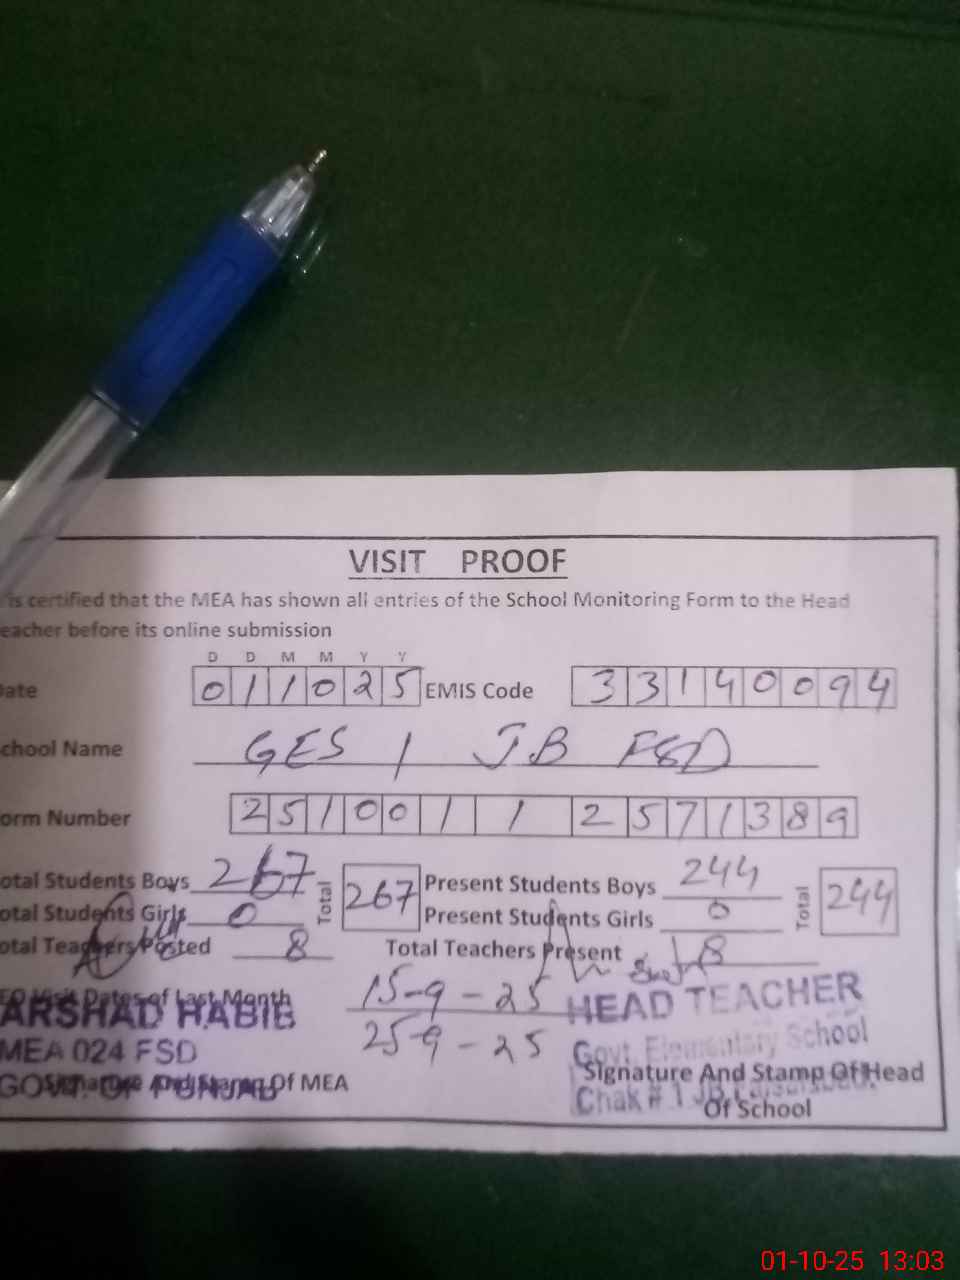 VISIT PROOF
is certified that the MEA has shown all entries of the School Monitoring Form to the Head
eacher before its online submission
D D M M Y Y
ate 011025 EMIS Code 33140094
chool Name GES 1 JB FSD
orm Number 25100112571389
otal Students Boys 267 Total 267 Present Students Boys 244 Total 244
otal Students Girls 0 Present Students Girls 0
otal Teachers Posted 8 Total Teachers Present 8
Visit Dates of Last Month 15-9-25
25-9-25
ARSHAD HABIB
MEA 024 FSD
GOVT. OF PUNJAB
Signature And Stamp Of MEA
HEAD TEACHER
Govt. Elementary School
Chak # 1 JB
Signature And Stamp Of Head
Of School
01-10-25 13:03